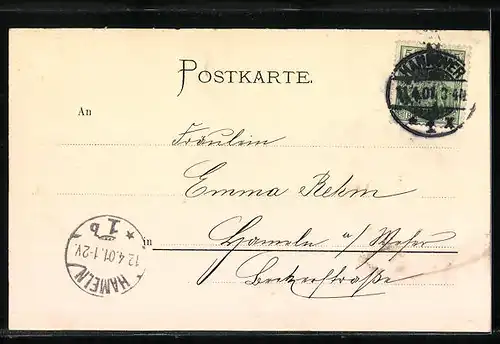 POSTKARTE.
HANNOVER
4.01. 3-4N
* 1 x
An
Fräulein
Emma Rehm
in Hameln a/ Weser
Beckerstraße
HAMELN
12.4.01.1-2V.
* 1b